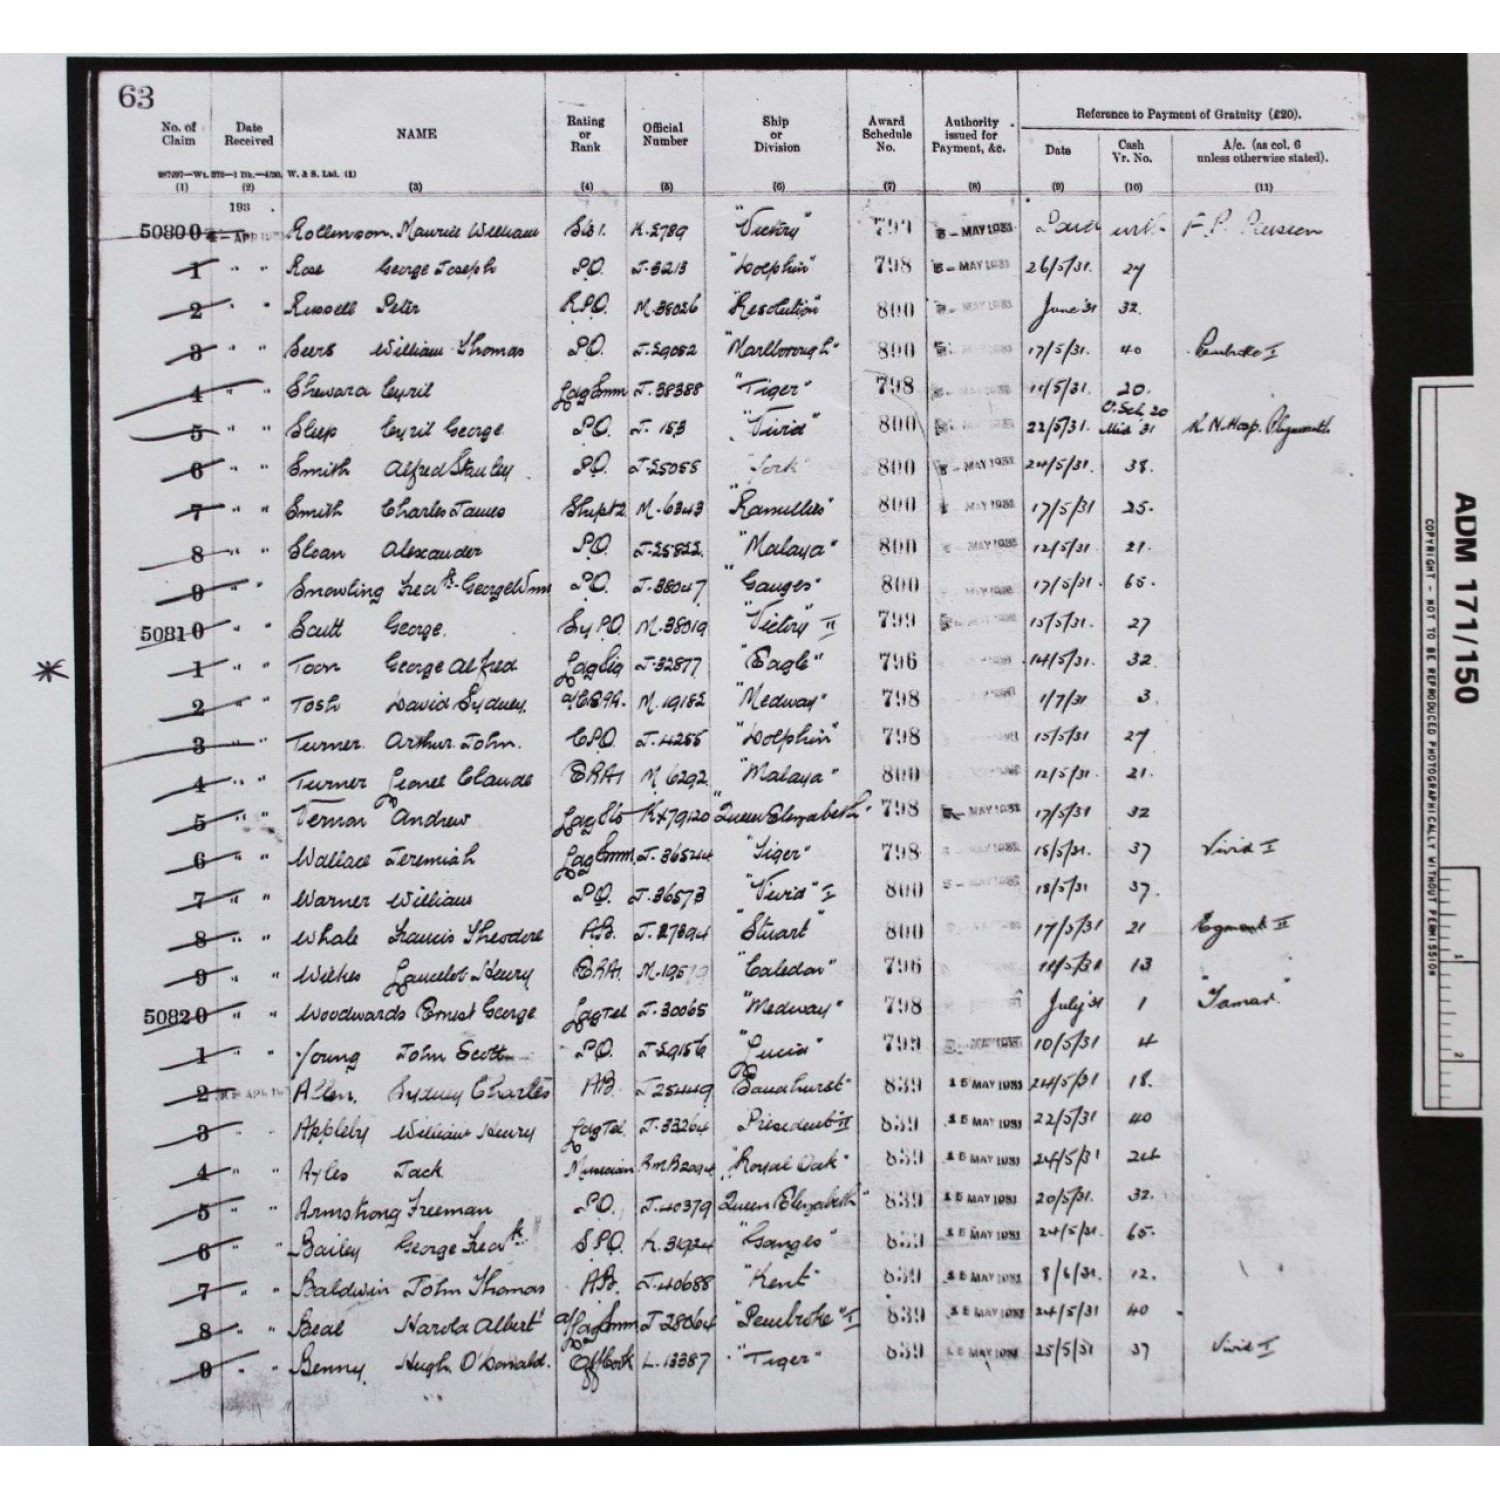 63
No. of Claim Date Received NAME Rating or Rank Official Number Ship or Division Award Schedule No. Authority issued for Payment, &c. Reference to Payment of Gratuity (£20).
Date Cash Vr. No. A/c. (as col. 6 unless otherwise stated).
W. & S. Ltd. (1)
(1) (2) (3) (4) (5) (6) (7) (8) (9) (10) (11)
193 .
50800 Rollinson. Maurice William Sto 1. K.2789 "Victory" 799 5-MAY 1931 F.P. Pension
1 " " Rose George Joseph P.O. J.3213 "Dolphin" 798 5-MAY 1931 26/5/31. 27
2 " " Russell Peter R.P.O. M.38026 "Resolution" 800 MAY 1931 June '31 32.
3 " " Seers William Thomas P.O. J.29052 "Marlborough" 800 17/5/31. 40 Pembroke I
4 " " Cyril LdgSmn J.38388 "Tiger" 798 11/5/31. 20.
5 " " Sleep Cyril George P.O. J.153 "Vivid" 800 22/5/31. O.Sch. 20 Mid '31 R.N. Hosp. Plymouth
6 " " Smith Alfred Stanley P.O. J.25055 York 800 5-MAY 1931 24/5/31. 38.
7 " " Smith Charles James Shipt 2 M.6343 "Ramillies" 800 MAY 1931 17/5/31 25.
8 " " Sloan Alexander P.O. J.25822. "Malaya" 800 MAY 1931 12/5/31. 21.
9 " " Snowling Fredk. George Wm P.O. J.38047 "Ganges" 800 17/5/31. 65.
50810 " " Scutt George. Sy P.O. M.38019 "Victory" II 799 15/5/31. 27
1 " " Toon George Alfred LdgSig J.32877 "Eagle" 796 14/5/31. 32
2 " " Tosh David Sydney. M.19182 "Medway" 798 1/7/31 3.
3 " " Turner. Arthur John. C.P.O. J.4255 "Dolphin" 798 15/5/31 27
4 " " Turner Lionel Claude ERA1 M.6292 "Malaya" 800 12/5/31. 21.
5 " " Vernon Andrew LdgSto KX79120 "Queen Elizabeth" 798 5-MAY 1931 17/5/31 32
6 " " Wallace Jeremiah LdgSmn. J.36544 "Tiger" 798 MAY 1931 18/5/31. 37 Vivid I
7 " " Warner William P.O. J.36573 "Vivid" I 800 5-MAY 1931 18/5/31 37.
8 " " Whale Francis Theodore A.B. J.27894 "Stuart" 800 17/5/31 21 Egmont II
9 " " Wilkes Lancelot Henry ERA1 "Caledon" 796 13
50820 " " Woodwards Ernest George LdgTel J.30065 "Medway" 798 July '31 1 "Tamar"
1 " " Young John Scott P.O. J.29156 "Lucia" 799 10/5/31 4
2 Allen. Sydney Charles A.B. J25449 "Sandhurst" 839 15 MAY 1931 24/5/31 18.
3 Appleby William Henry LdgTel. J.33264 "President" II 839 15 MAY 1931 22/5/31 40
4 " " Ayles Jack Musician "Royal Oak" 839 15 MAY 1931 24/5/31 24
5 " " Armstrong Freeman P.O. J.40379 "Queen Elizabeth" 839 15 MAY 1931 20/5/31. 32.
6 " " Bailey George Fredk. S.P.O. K.31924 "Ganges" 839 15 MAY 1931 24/5/31. 65.
7 " " Baldwin John Thomas A.B. J.40688 "Kent" 839 15 MAY 1931 8/6/31. 12.
8 " " Beal Harold Albert a/LdgSmn J28064 "Pembroke" I 839 15 MAY 1931 24/5/31 40
9 " " Benny. Hugh O'Donald. OffCook L.13387 "Tiger" 839 MAY 1931 25/5/31 37 Vivid I
ADM 171/150
COPYRIGHT - NOT TO BE REPRODUCED PHOTOGRAPHICALLY WITHOUT PERMISSION
1
2